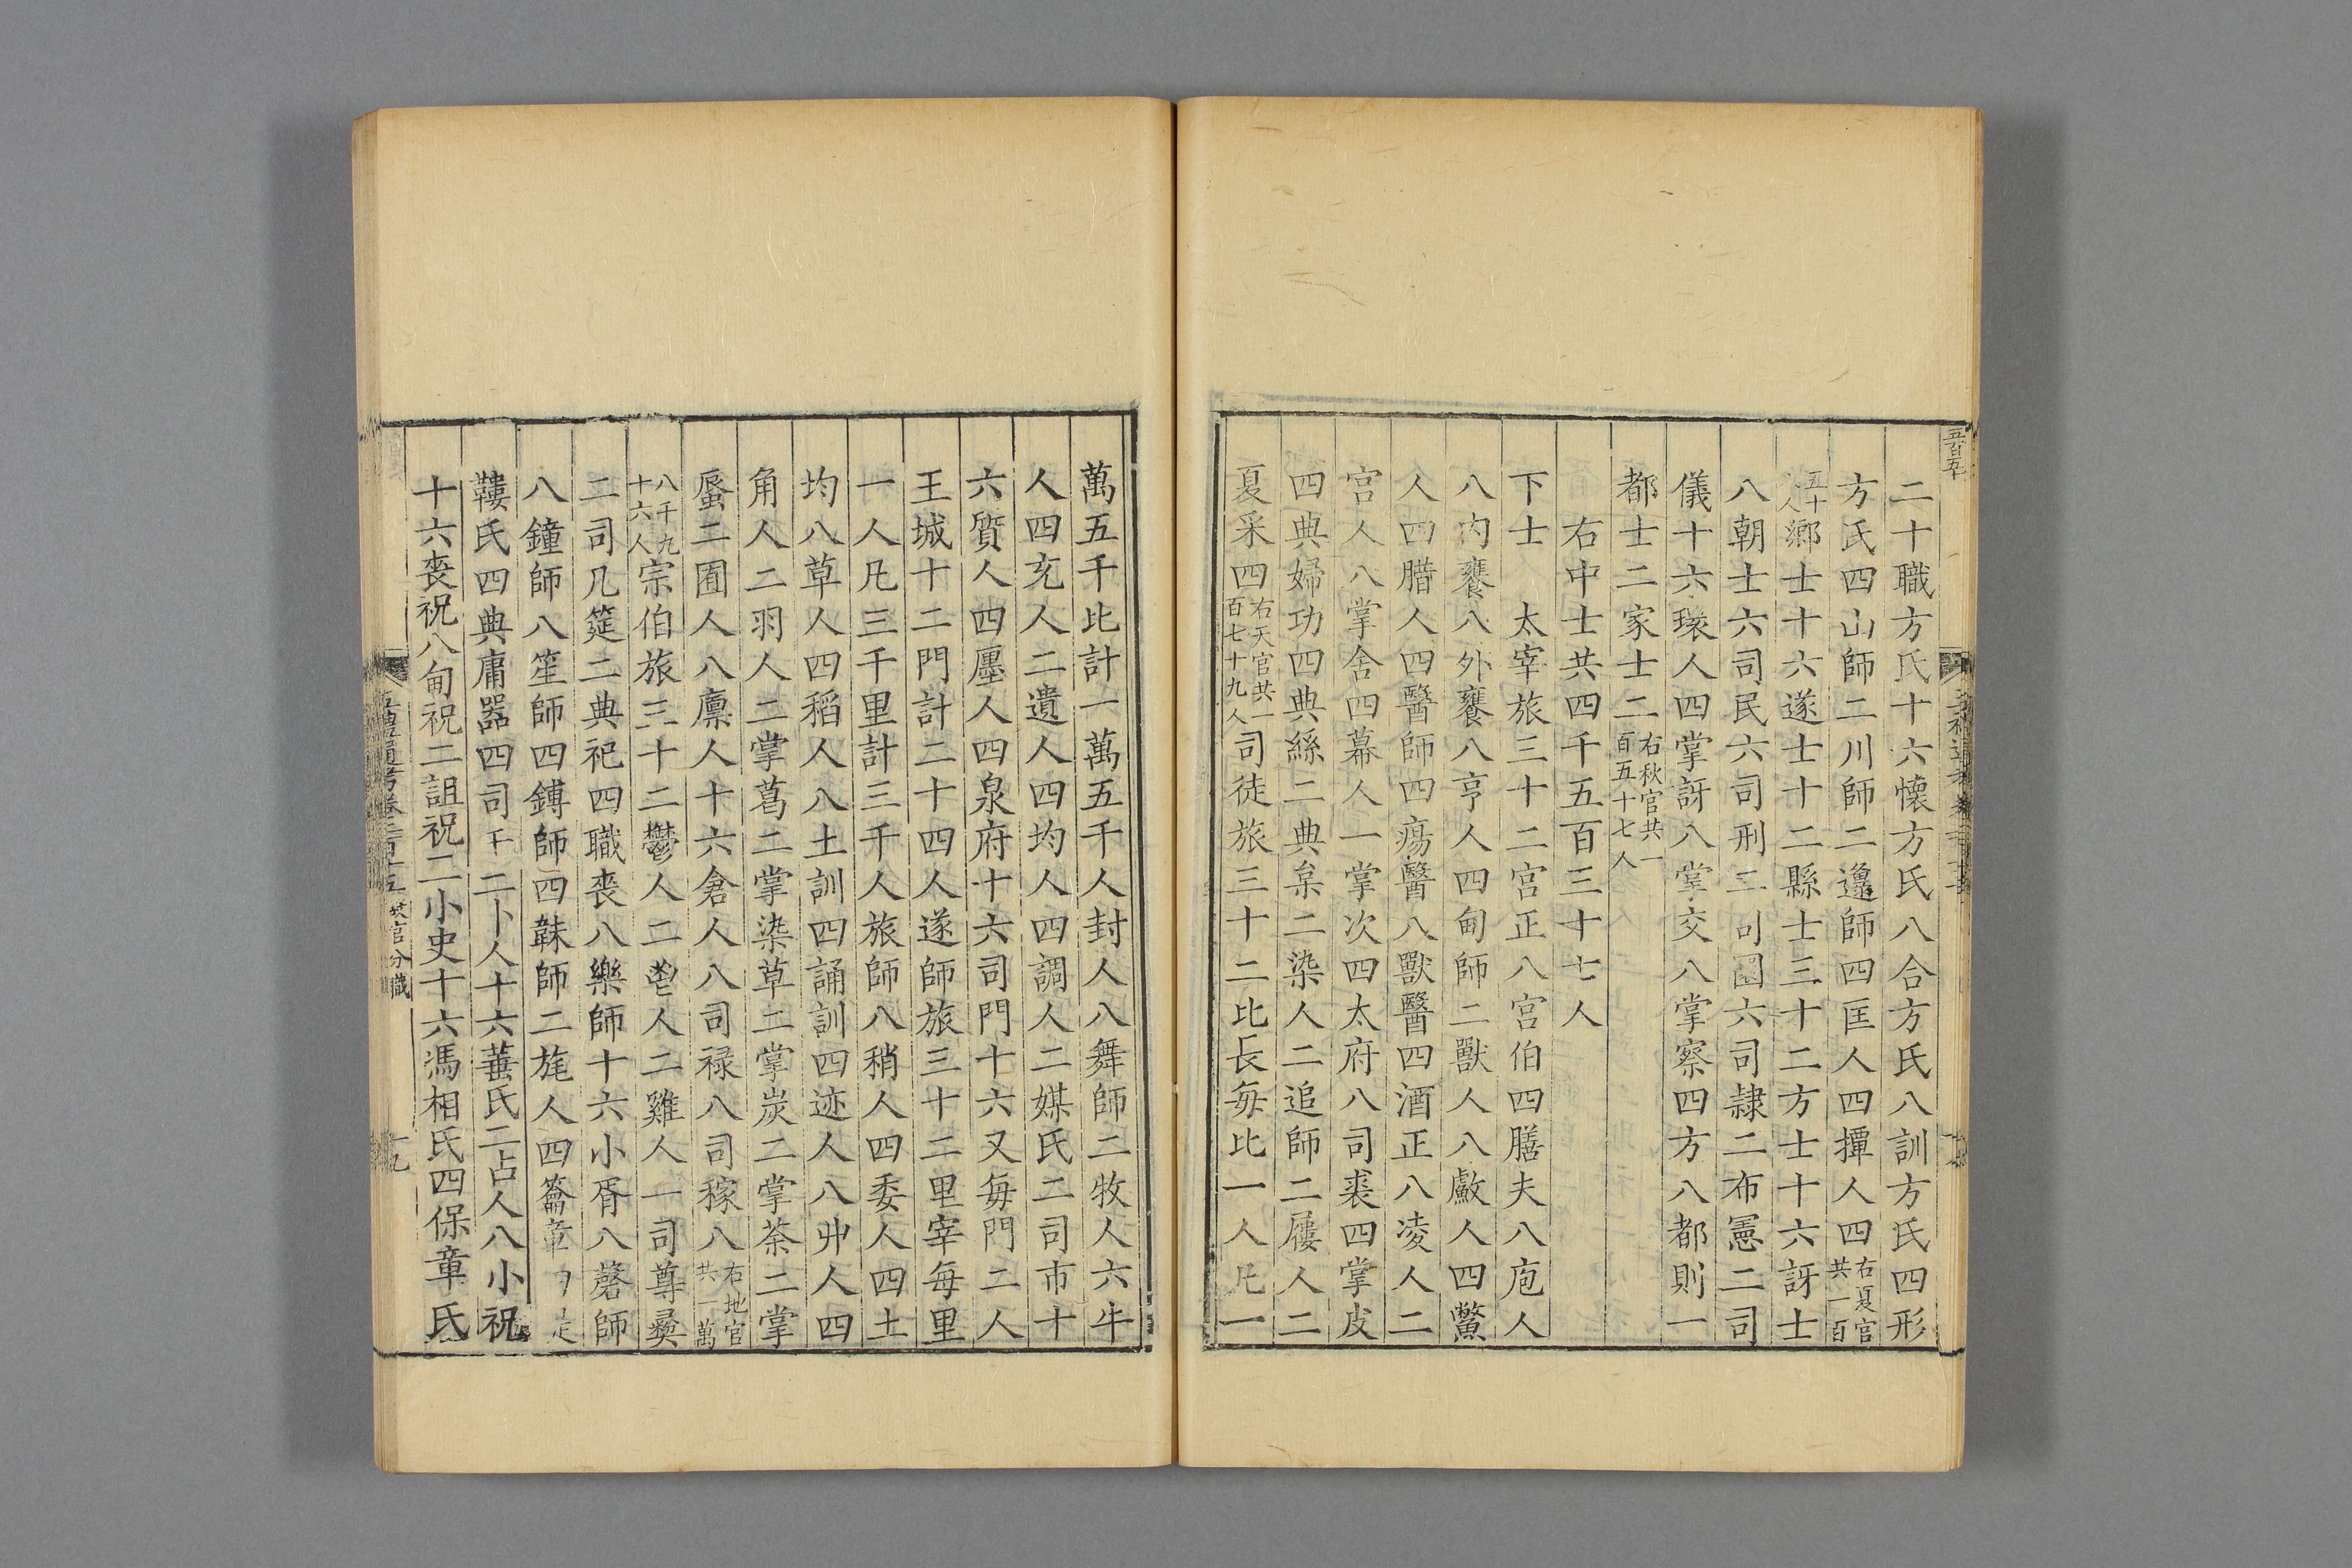 二十職方氏十六懷方氏八合方氏八訓方氏四形
方氏四山師二川師二邍師四匡人四撢人四右夏官共一百
五十八人鄉士十六遂士十二縣士三十二方士十六訝士
八朝士六司民六司刑二司圜六司隸二布憲二司
儀十六環人四掌訝八掌交八掌察四方八都則一
都士二家士二右秋官共一百五十七人
右中士共四千五百三十七人
下士 太宰旅三十二宮正八宮伯四膳夫八庖人
八內饔八外饔八亨人四甸師二獸人八𩼪人四鱉
人四腊人四醫師四瘍醫八獸醫四酒正八凌人二
宮人八掌舍四幕人一掌次四太府八司裘四掌皮
四典婦功四典絲二典枲二染人二追師二屨人二
夏采四右天官共一百七十九人司徒旅三十二比長每比一人凡一
萬五千比計一萬五千人封人八舞師二牧人六牛
人四充人二遺人四均人四調人二媒氏二司市十
六質人四廛人四泉府十六司門十六又每門二人
王城十二門計二十四人遂師旅三十二里宰每里
一人凡三千里計三千人旅師八稍人四委人四土
均八草人四稻人八土訓四誦訓四迹人八丱人四
角人二羽人二掌葛二掌染草二掌炭二掌荼二掌
蜃二囿人八廩人十六倉人八司祿八司稼八右地官共一萬
八千九十六人宗伯旅三十二鬱人二鬯人二雞人一司尊彝
二司几筵二典祀四職喪八樂師十六小胥八磬師
八鐘師八笙師四鎛師四韎師二旄人四籥章
鞻氏四典庸器四司干二卜人十六菙氏二占人八小祝
十六喪祝八甸祝二詛祝二小史十六馮相氏四保章氏
官分職